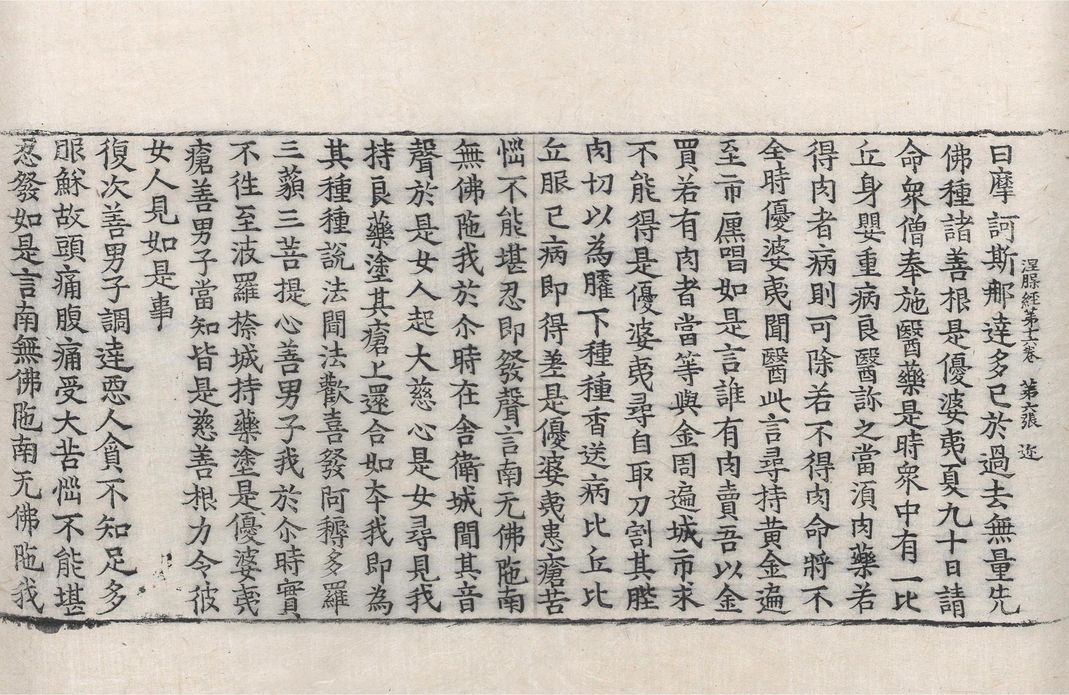 涅槃經第十六卷　第六張　迩
曰摩訶斯那達多已於過去無量先
佛種諸善根是優婆夷夏九十日請
命衆僧奉施醫藥是時衆中有一比
丘身嬰重病良醫診之當湏肉藥若
得肉者病則可除若不得肉命將不
全時優婆夷聞醫此言尋持黃金遍
至市㕓唱如是言誰有肉賣吾以金
買若有肉者當等與金周遍城市求
不能得是優婆夷尋自取刀割其䏶
肉切以為臛下種種香送病比丘比
丘服已病即得差是優婆夷患瘡苦
惱不能堪忍即發聲言南无佛陁南
無佛陁我於尒時在舍衛城聞其音
聲於是女人起大慈心是女尋見我
持良藥塗其瘡上還合如夲我即為
其種種說法聞法歡喜發阿耨多羅
三藐三菩提心善男子我於尒時實
不往至波羅㮈城持藥塗是優婆夷
瘡善男子當知皆是慈善根力令彼
女人見如是事
復次善男子調達惡人貪不知足多
服穌故頭痛腹痛受大苦惱不能堪
忍發如是言南無佛陁南无佛陁我